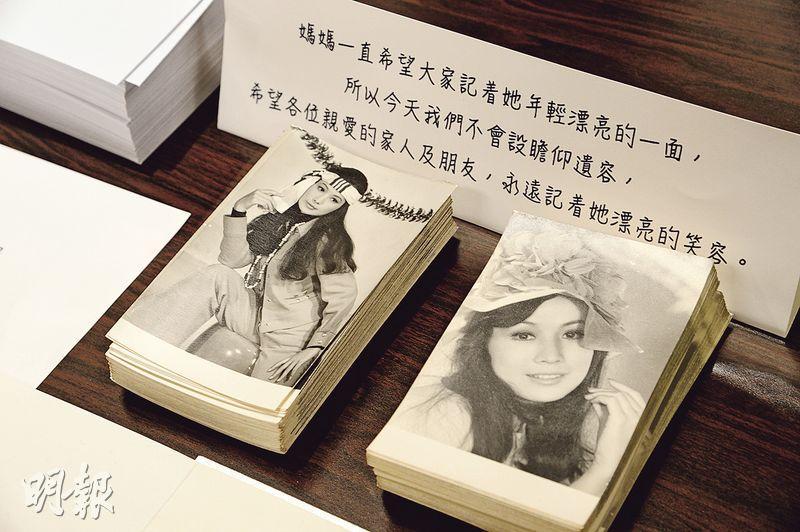 媽媽一直希望大家記着她年輕漂亮的一面，
所以今天我們不會設瞻仰遺容，
希望各位親愛的家人及朋友，永遠記着她漂亮的笑容。
明報